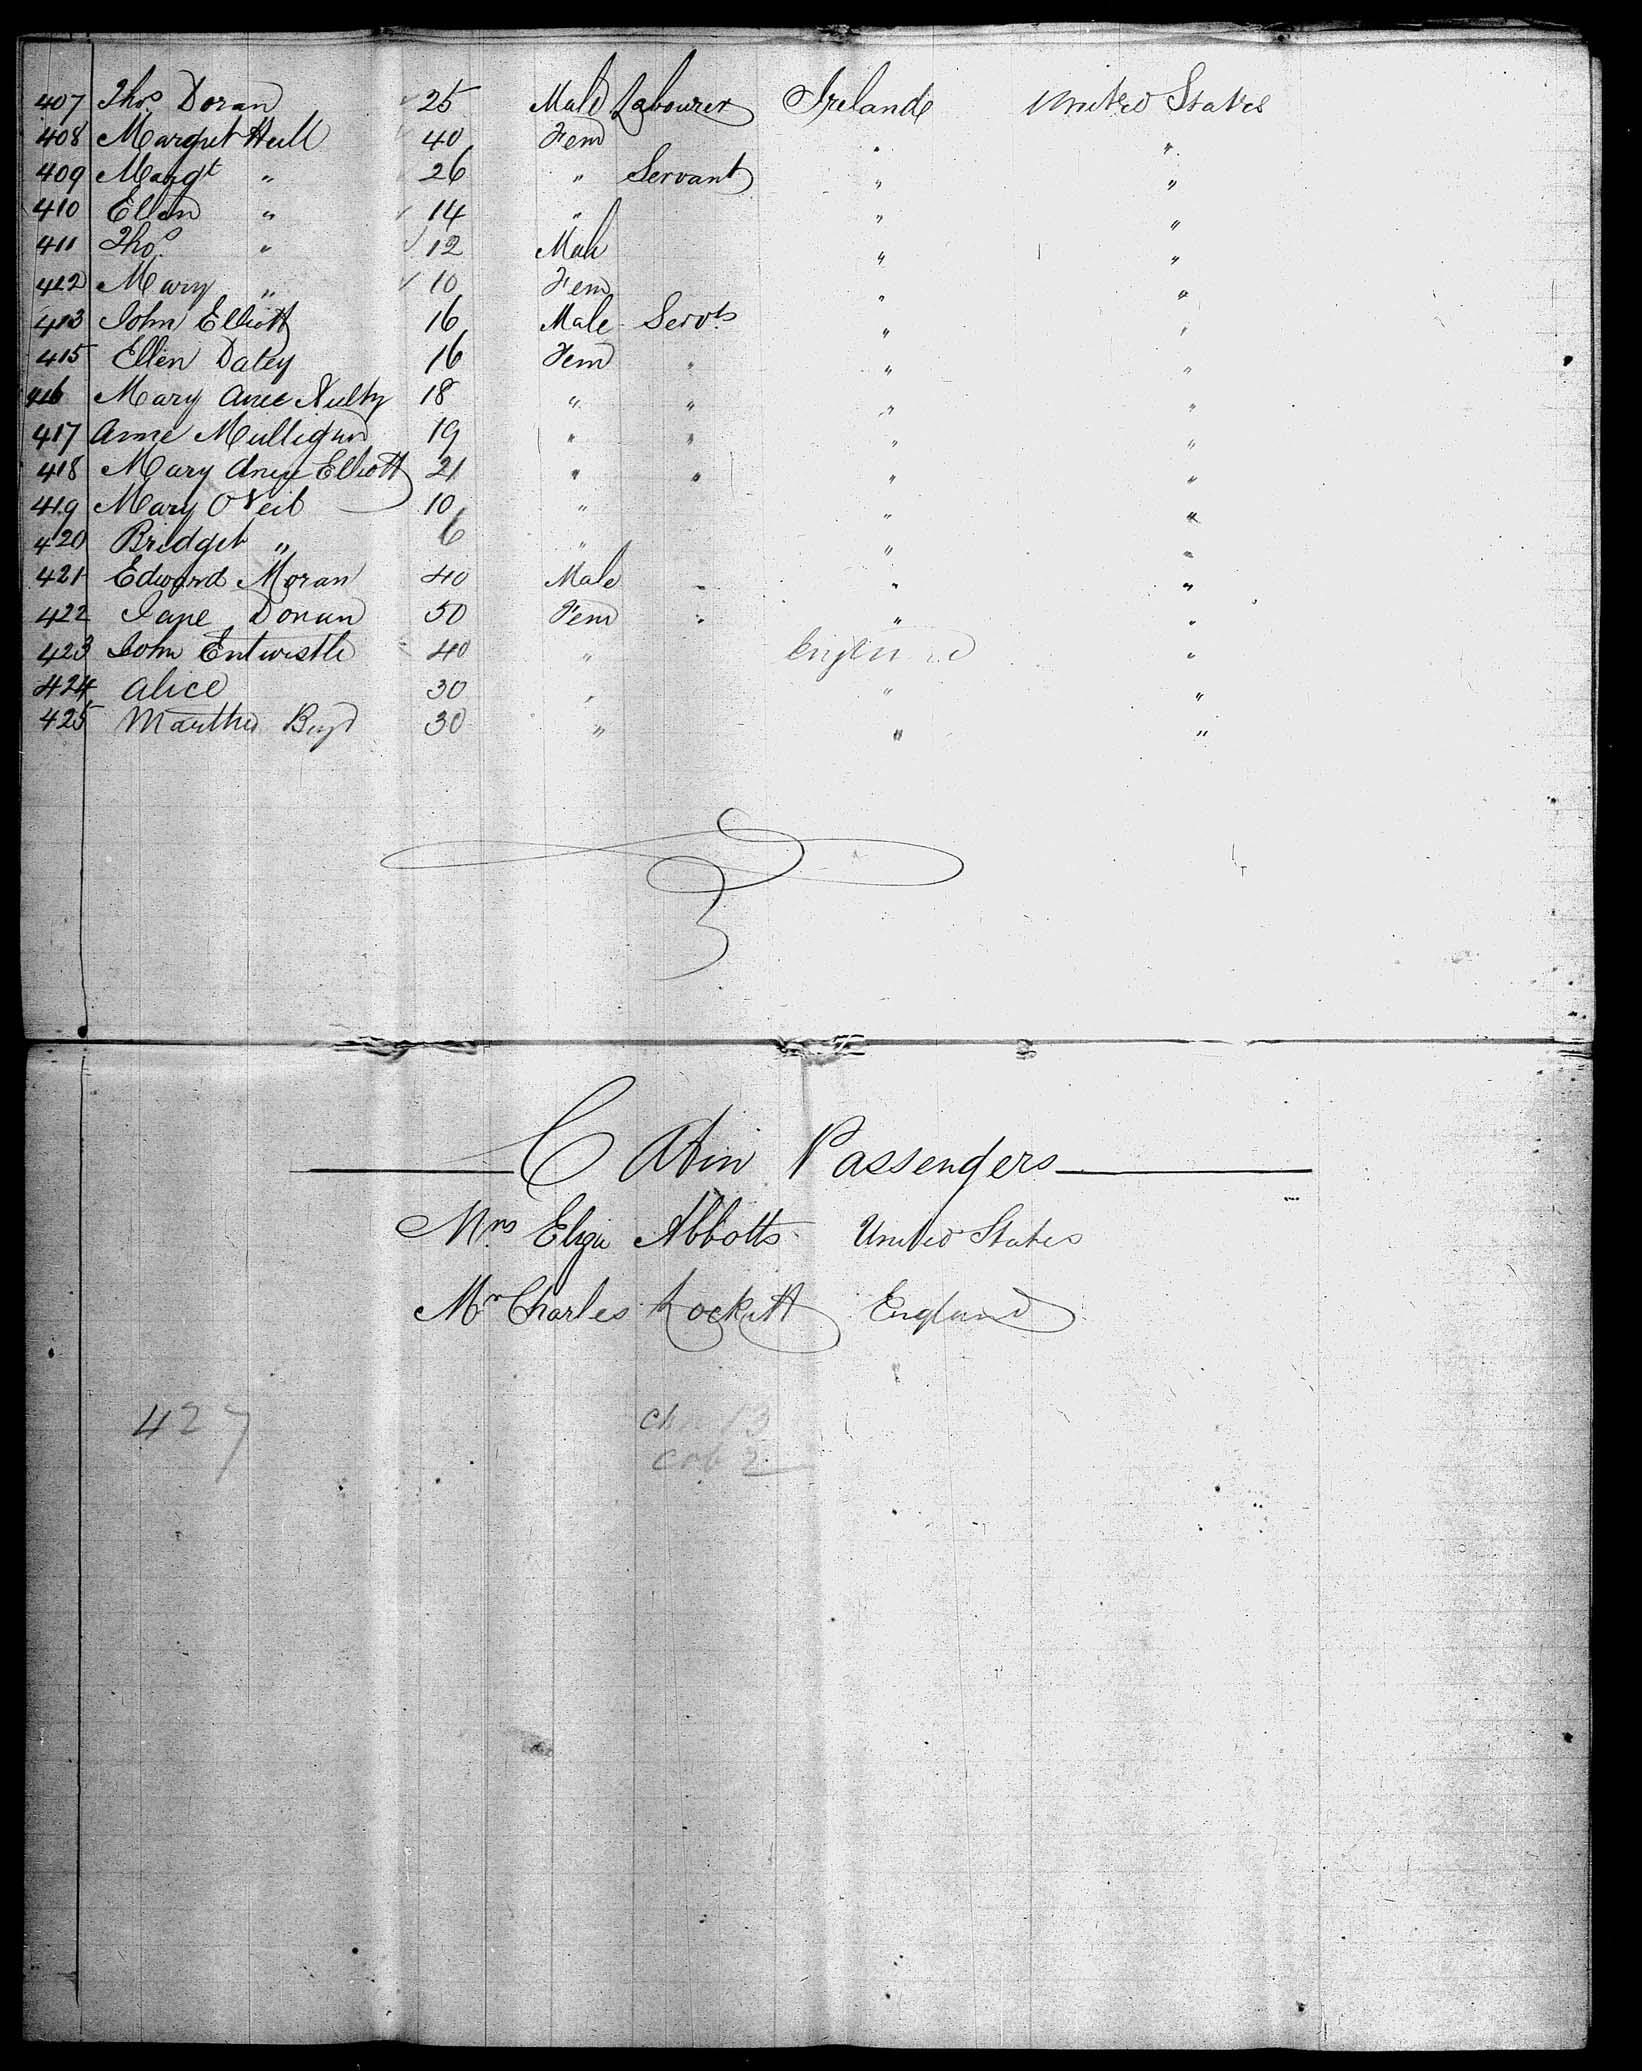 407 Thos Doran 25 Male Labourer Ireland United States
408 Margret Hull 40 Fem " "
409 Margt " 26 " Servant " "
410 Ellen " 14 " " "
411 Thos " 12 Male " "
412 Mary " 10 Fem " "
413 John Elliott 16 Male Servts " "
415 Ellen Daley 16 Fem " " "
416 Mary Anne Nulty 18 " " " "
417 Anne Mulligan 19 " " " "
418 Mary Anne Elliott 21 " " " "
419 Mary O Neil 10 " " "
420 Bridget " 6 " " "
421 Edward Moran 40 Male " " "
422 Jane Doran 50 Fem " " "
423 John Entwistle 40 " England "
424 Alice 30 " " "
425 Martha Boyd 30 " " "
Cabin Passengers
Mrs Eliza Abbotts United States
Mr Charles Lockett England
427 13
cab 2